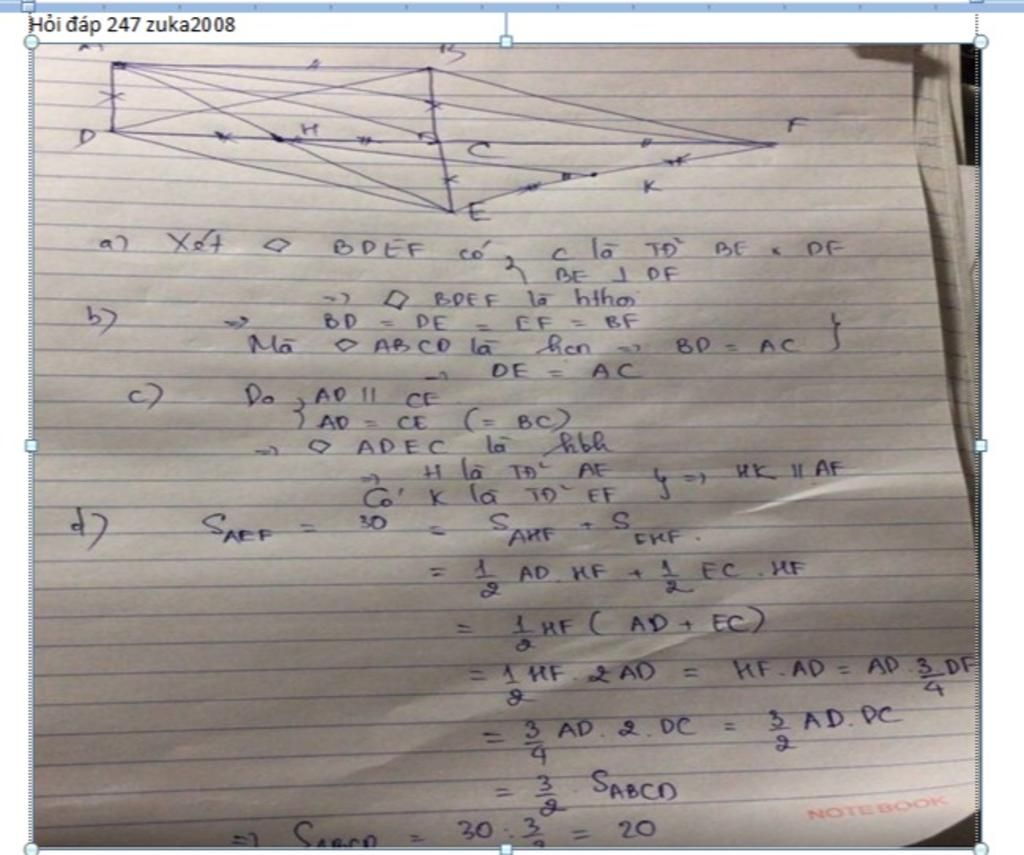 Hỏi đáp 247 zuka2008
B
D H C F
K
E
a) Xét ◇ BDEF có { C là TĐ² BE, DF
BE ⊥ DF
=> ◇ BDEF là hthoi
b) => BD = DE = EF = BF
Mà ◇ ABCD là hcn => BD = AC }
=> DE = AC
c) Do { AD // CE
AD = CE (= BC)
=> ◇ ADEC là hbh
=> H là TĐ² AE } => HK // AF
Có K là TĐ² EF
d) S_AEF = 30 = S_AHF + S_EHF.
= 1/2 AD . HF + 1/2 EC . HF
= 1/2 HF ( AD + EC )
= 1/2 HF . 2 AD = HF . AD = AD . 3/4 DF
= 3/4 AD . 2 . DC = 3/2 AD . DC
= 3/2 S_ABCD
NOTEBOOK
=> S_ABCD = 30 : 3/2 = 20